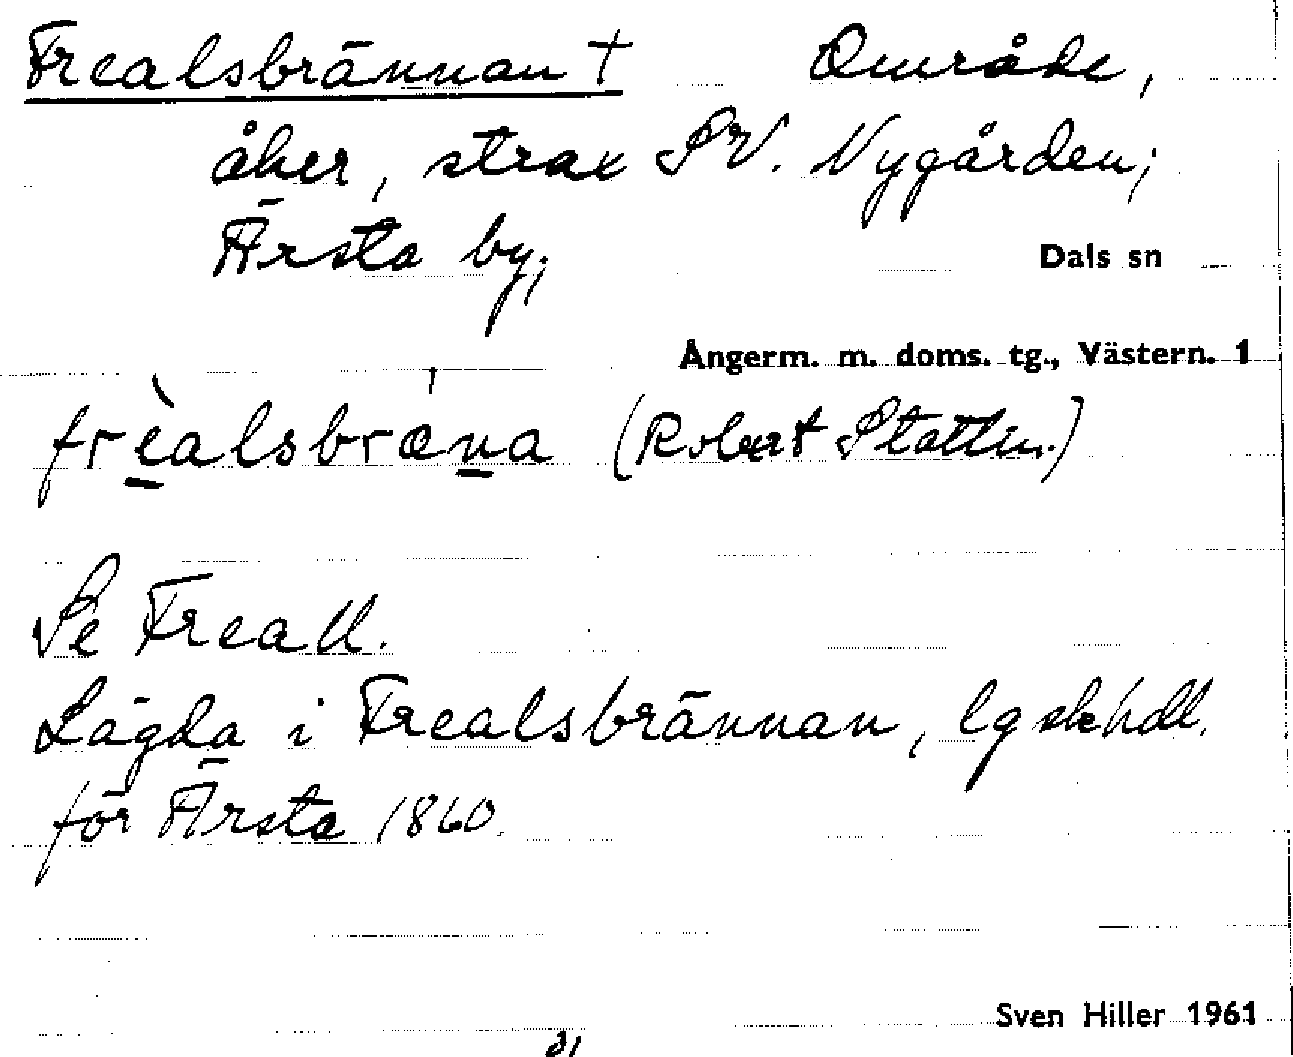 Frealsbrännan † Område,
åker, strax SV. Nygården;
Ärsta by;
Dals sn
Ångerm. m. doms. tg., Västern. 1
frèalsbræna (Robert Stattin.)
Se Freall.
Lägda i Frealsbrännan, lgskhdl.
för Ärsta 1860.
Sven Hiller 1961